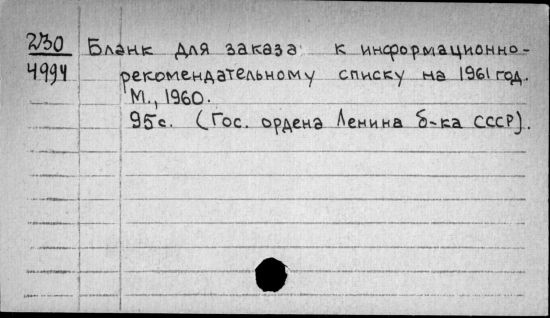 230
4994
Бланк для заказа к информационно-
рекомендательному списку на 1961 год.
М., 1960.
95с. (Гос. ордена Ленина б-ка СССР).